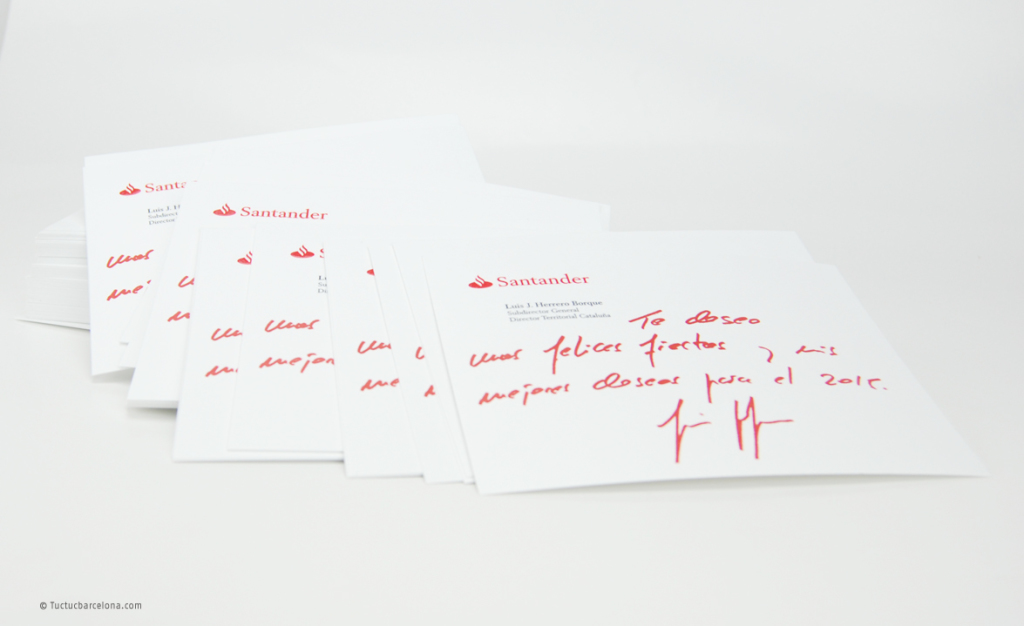 Santa
Luis J. H
Subdirect
Director
unas
mej
Santander
u
m
un
mej
unas
mejor
Lu
Su
Di
un
me
u
m
Santander
Luis J. Herrero Borque
Subdirector General
Director Territorial Cataluña
Te deseo
unas felices fiestas y mis
mejores deseos para el 2015.
© Tuctucbarcelona.com